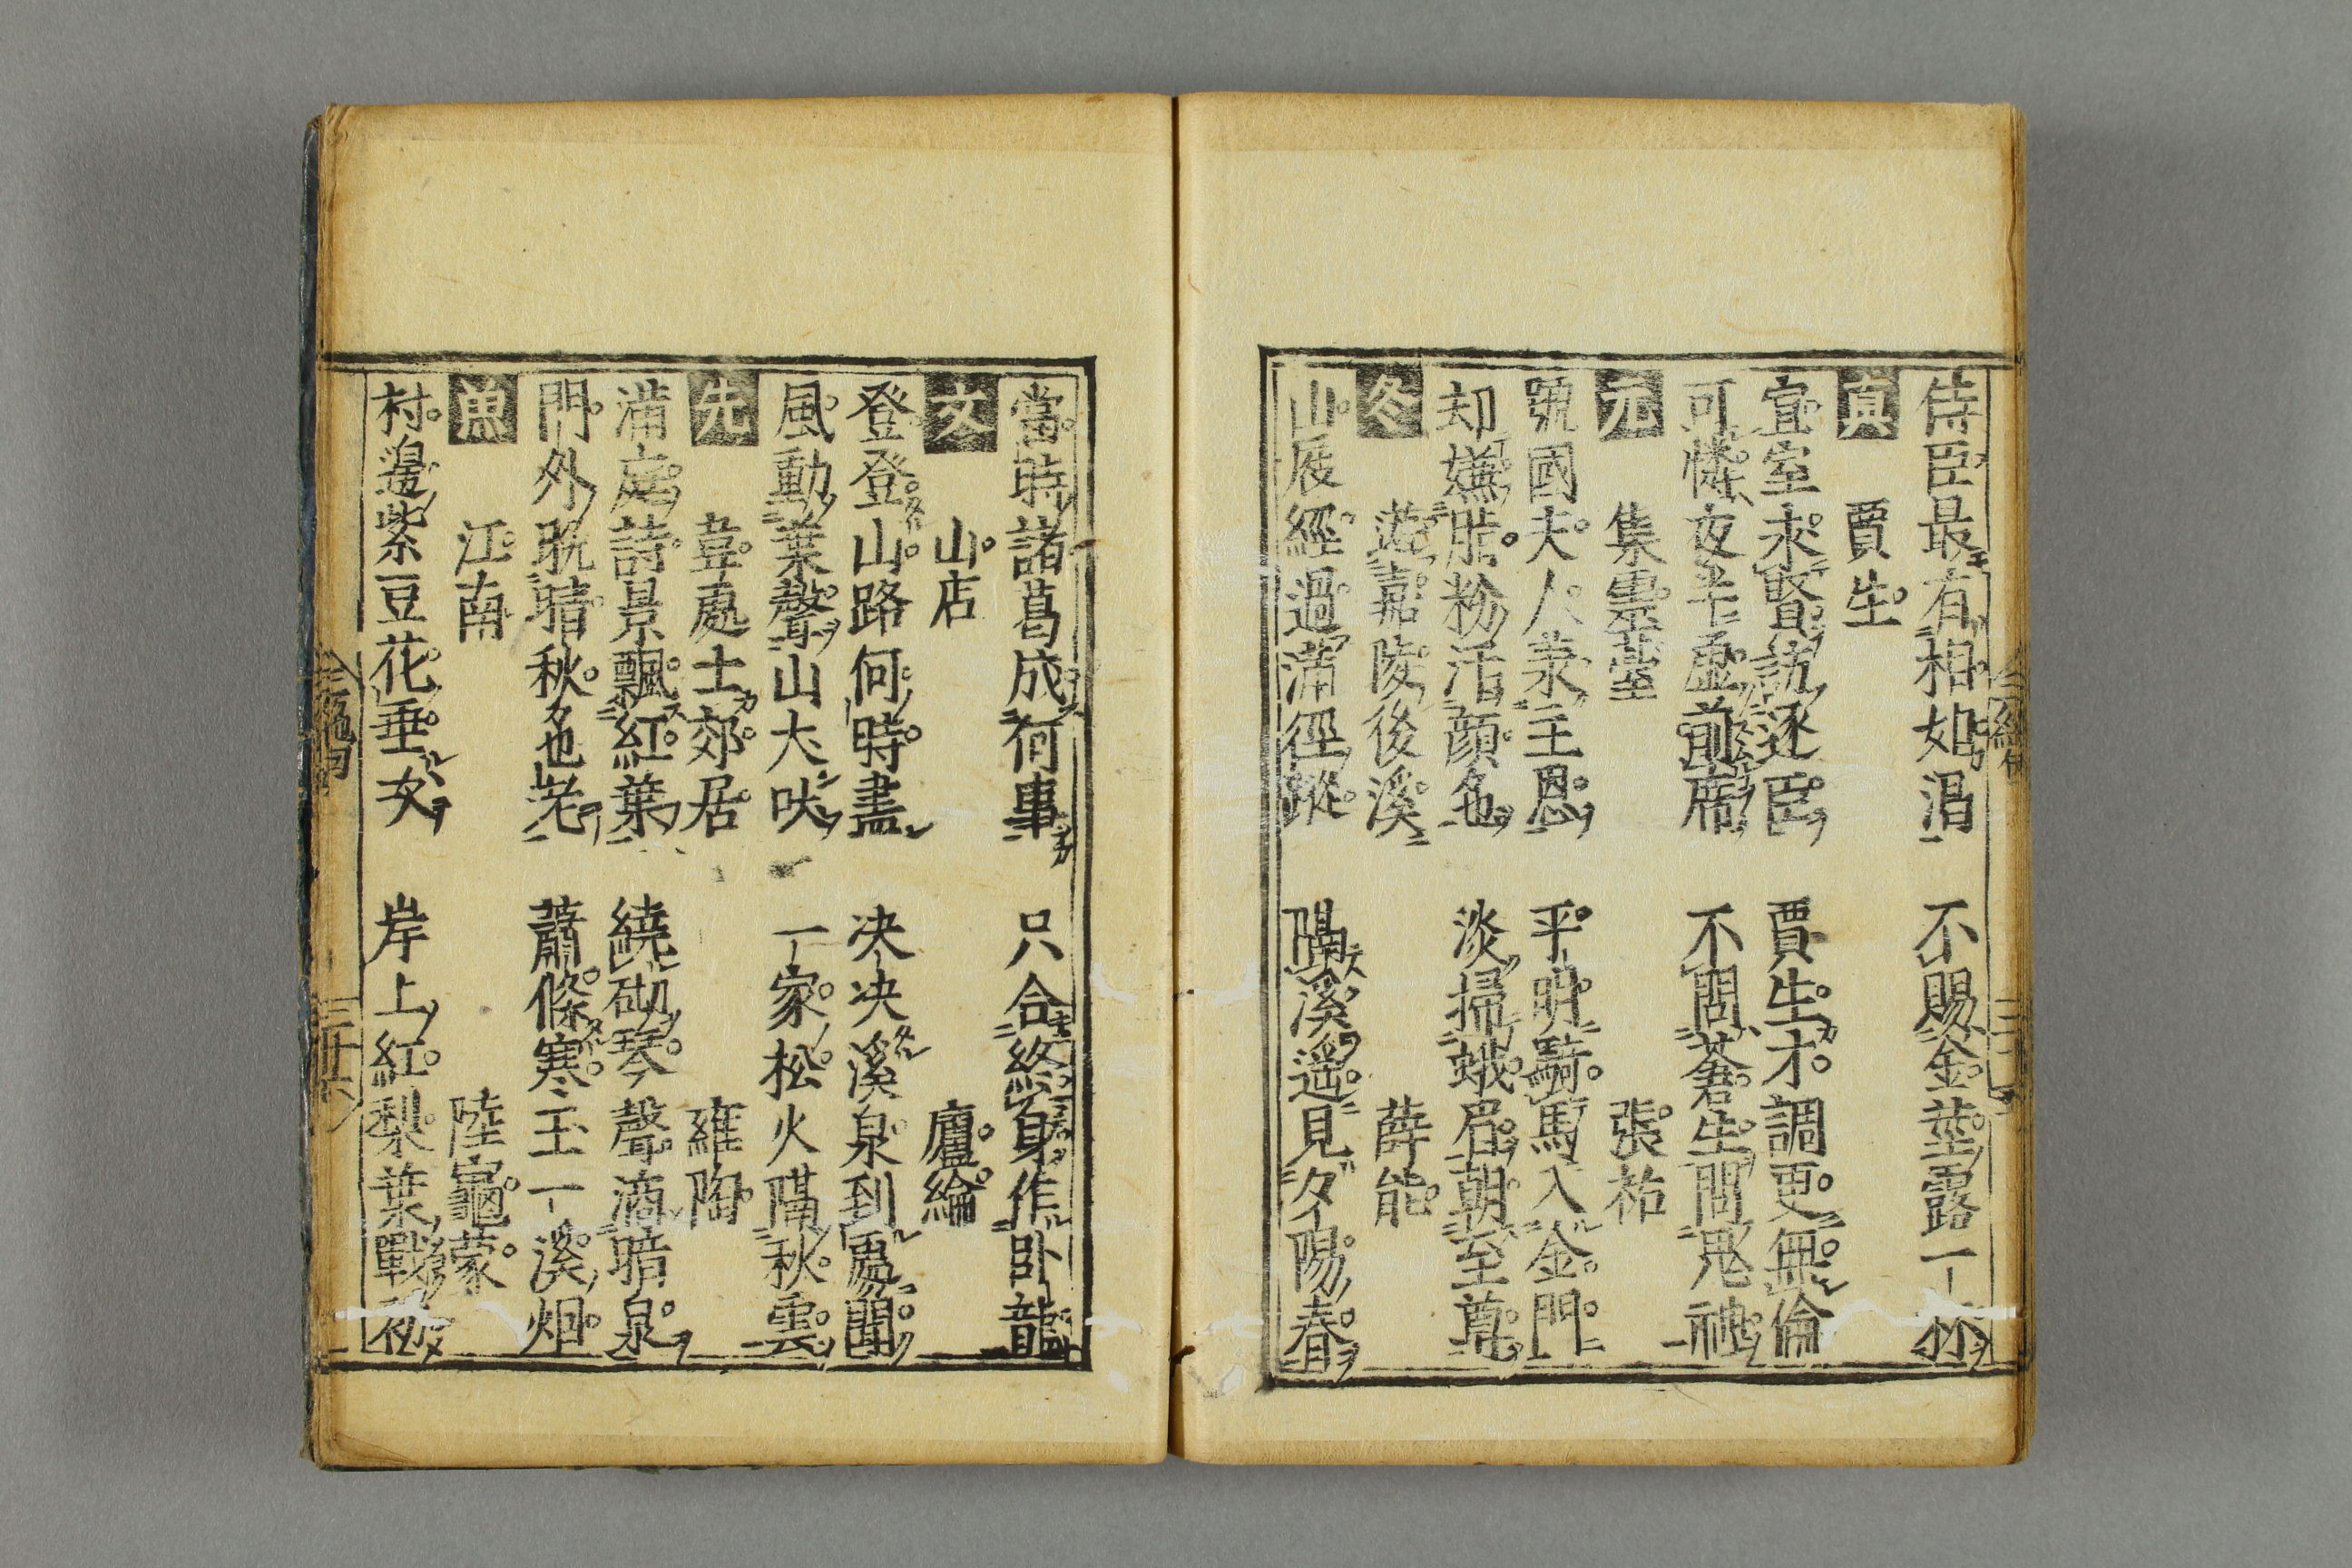 侍臣最有相如渇　不賜金莖露一杯
真　賈生
宣室求賢訪逐臣　賈生才調更無倫
可憐夜半虚前席　不問蒼生問鬼神
元　集霊臺　張祐
虢國夫人兼主恩　平明騎馬入金門
却嫌脂粉汚顔色　淡掃蛾眉朝至尊
冬　遊嘉陵後溪　薛能
山屐經過滿徑蹤　隔溪遥見夕陽春
當時諸葛成何事　只合終身作卧龍
文　山店　廬綸
登登山路何時盡　决决溪泉到處聞
風動葉聲山犬吠　一家松火隔秋雲
先　韋處士郊居　雍陶
滿庭詩景飄紅葉　繞砌琴聲滴暗泉
門外晩晴秋色老　蕭條寒玉一溪烟
魚　江南　陸龜蒙
村邊紫豆花垂次　岸上紅梨葉戰初